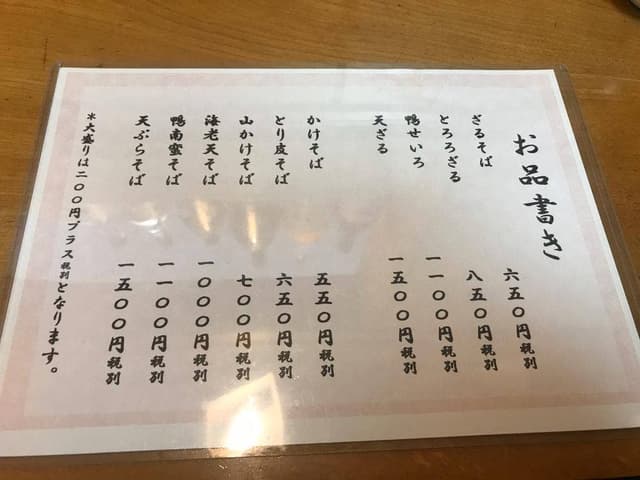 お品書き
ざるそば 六五〇円税別
とろろざる 八五〇円税別
鴨せいろ 一一〇〇円税別
天ざる 一五〇〇円税別
かけそば 五五〇円税別
とり皮そば 六五〇円税別
山かけそば 七〇〇円税別
海老天そば 一〇〇〇円税別
鴨南蛮そば 一一〇〇円税別
天ぷらそば 一五〇〇円税別
＊大盛りは二〇〇円プラス税別となります。